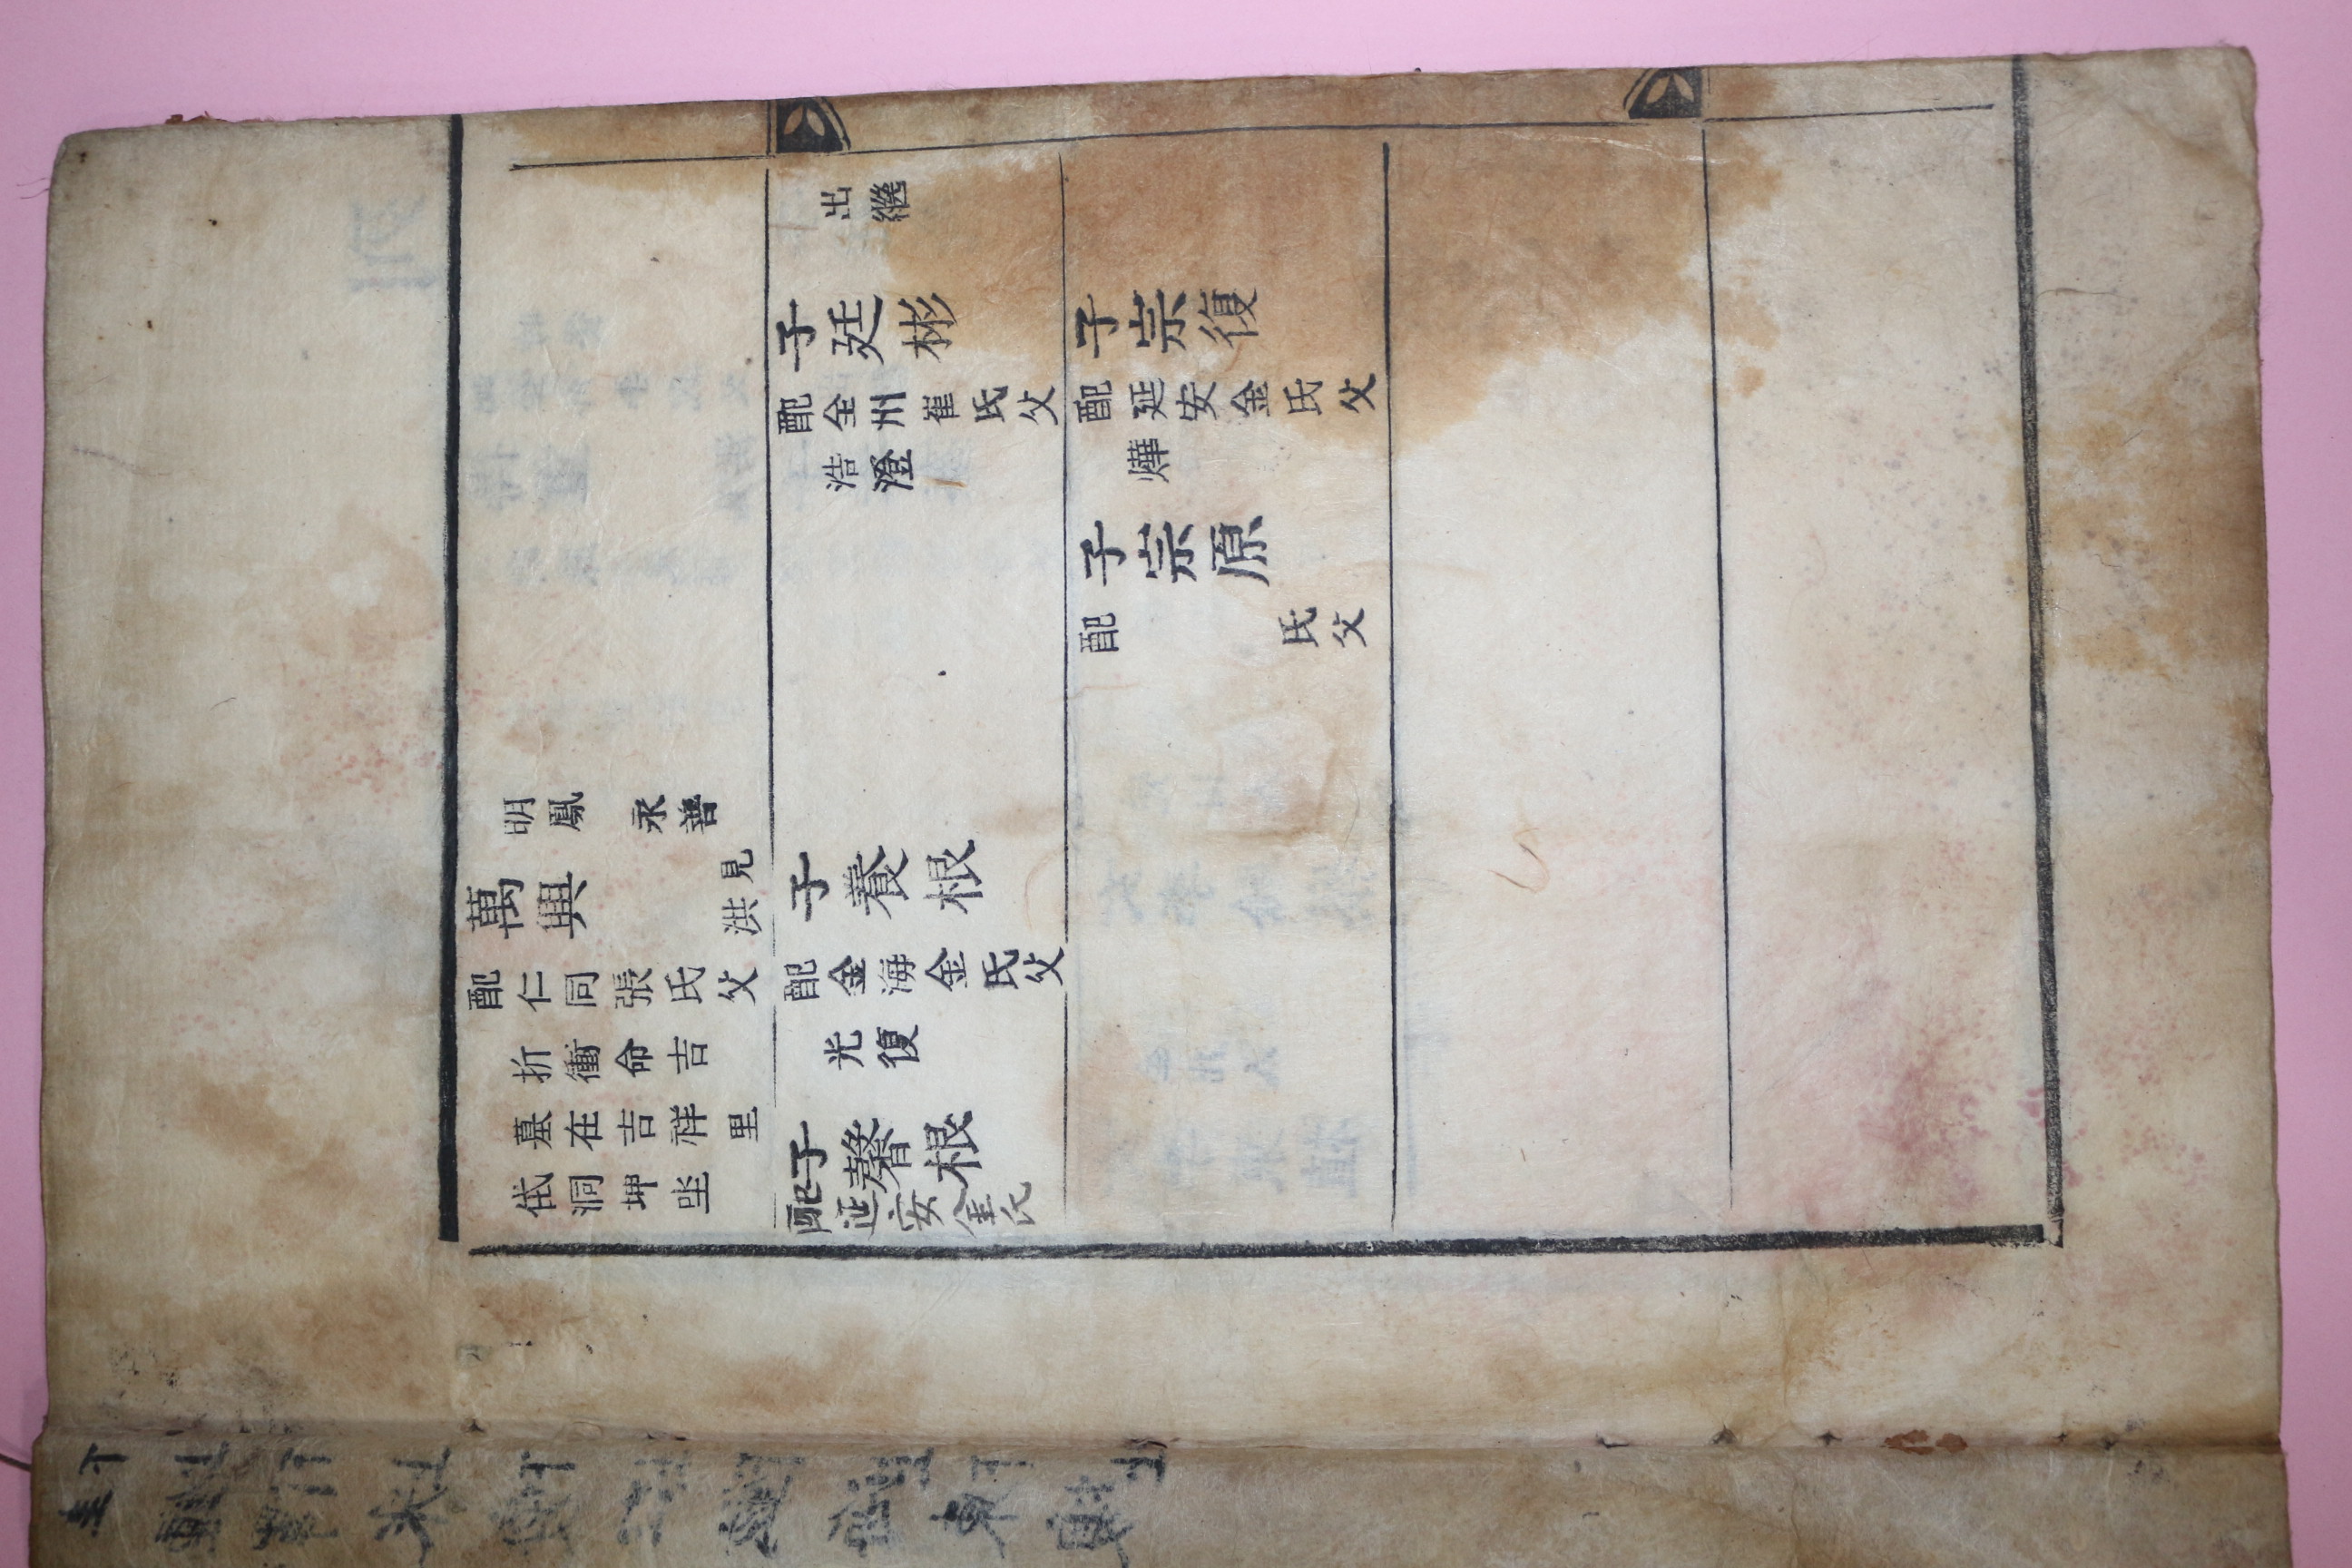 明鳳 永善
萬興 見洪
配仁同張氏父
折衝命吉
墓在吉祥里
洞坤坐
出繼
子廷彬
配全州崔氏父
浩澄
子養根
配金海金氏父
光復
子馨根
配延安金氏
子宗復
配延安金氏父
燁
子宗原
配 氏父